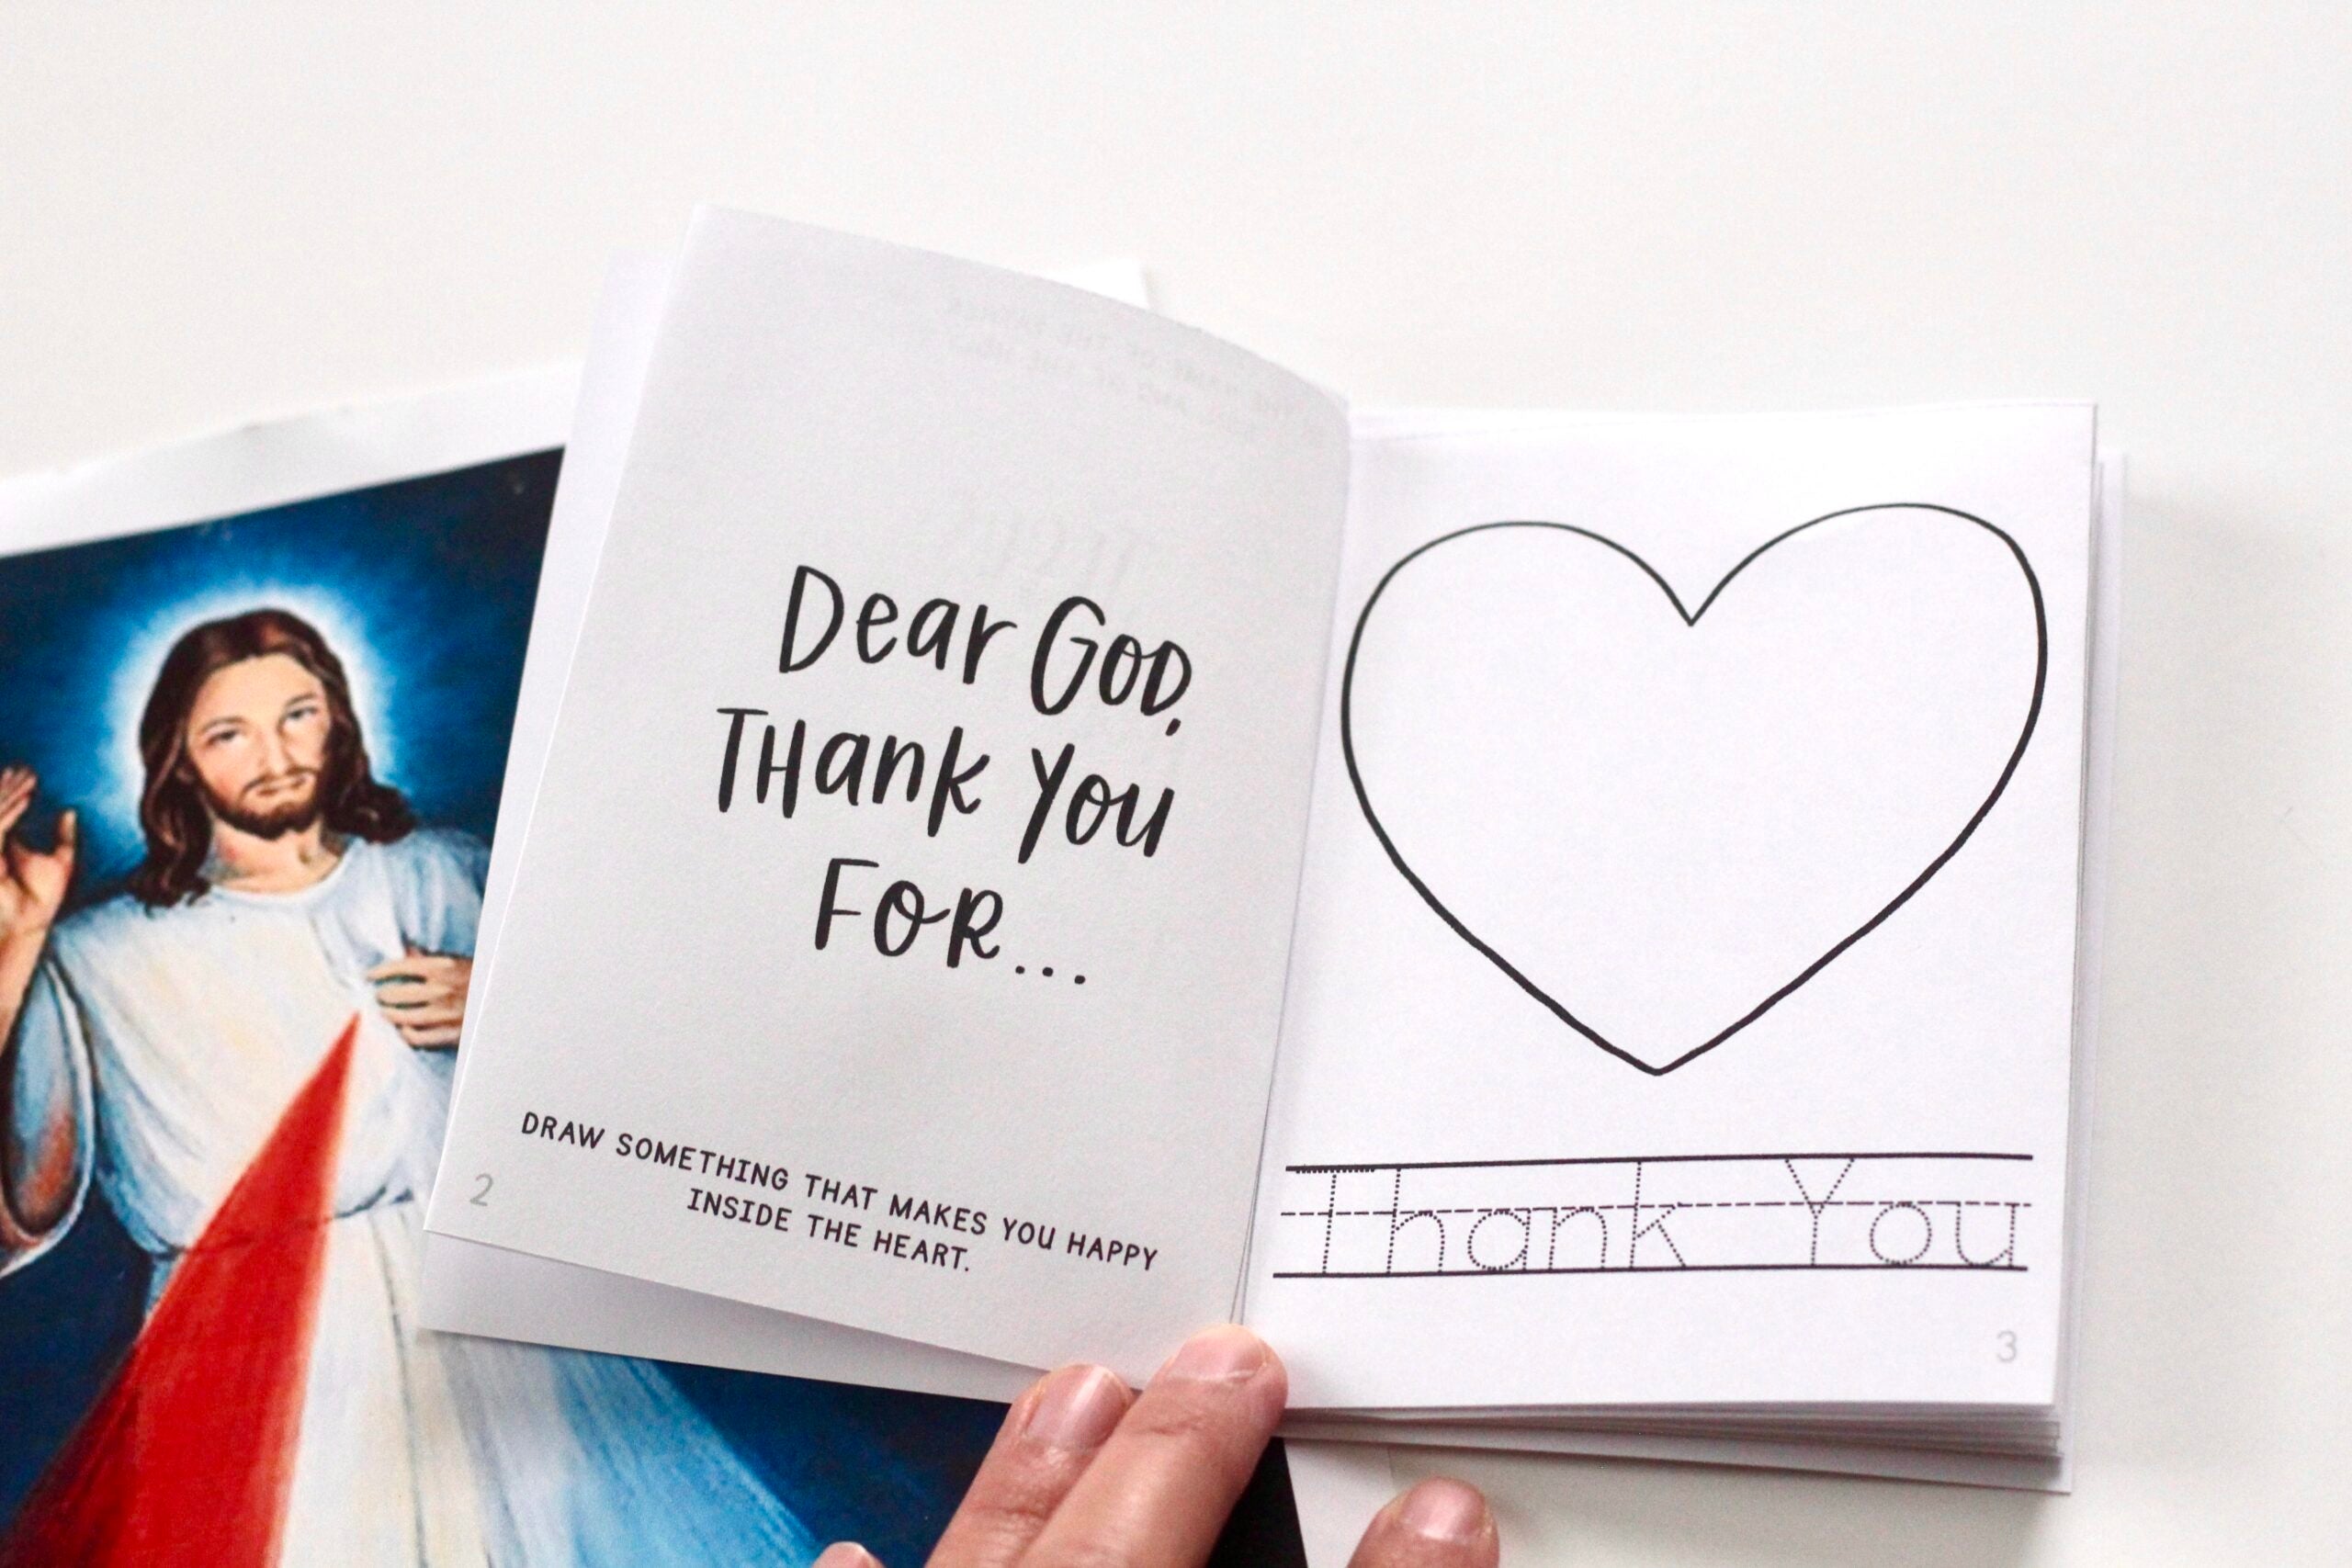 Dear God,
Thank You
For...
DRAW SOMETHING THAT MAKES YOU HAPPY
INSIDE THE HEART.
2
Thank You
3